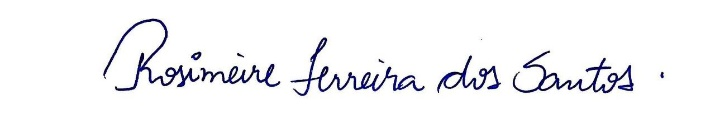 Rosimeire Ferreira dos Santos.